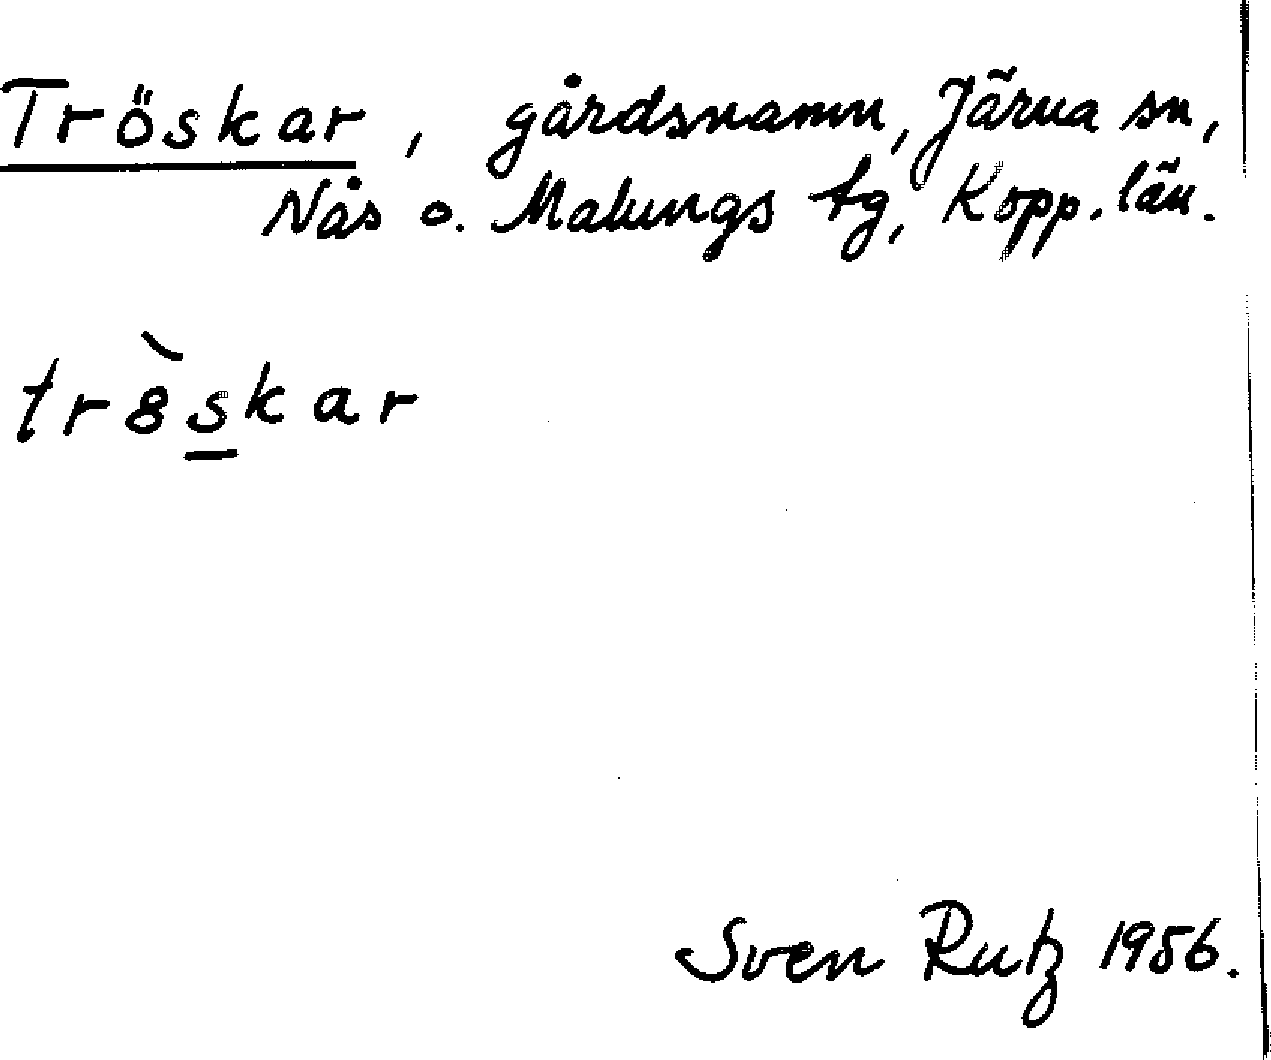 Tröskar, gårdsnamn, Järna sn,
Nås o. Malungs tg, Kopp. län.
tr8̀s̲kar
Sven Rutz 1956.